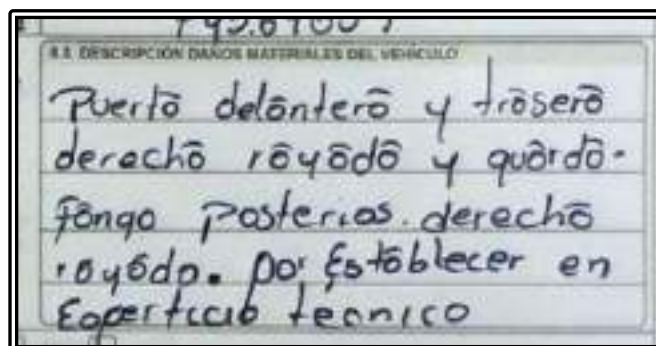 8.8. DESCRIPCIÓN DAÑOS MATERIALES DEL VEHÍCULO
Puerta delantera y trasera
derecha rayada y guarda-
fango posterios. derecha
rayado. Por Establecer en
Experticia tecnico